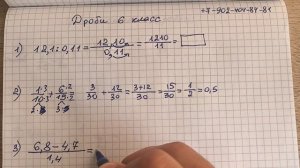 Дроби 6 класс
+7-902-404-84-81
1) 12,1 : 0,11 = 12,10 / 0,11 = 1210 / 11 =
2) 1·3 / 10·3 + 6·2 / 15·2 = 3/30 + 12/30 = 3+12 / 30 = 15/30 = 1/2 = 0,5
3) 6,8 - 4,7 / 1,4 =